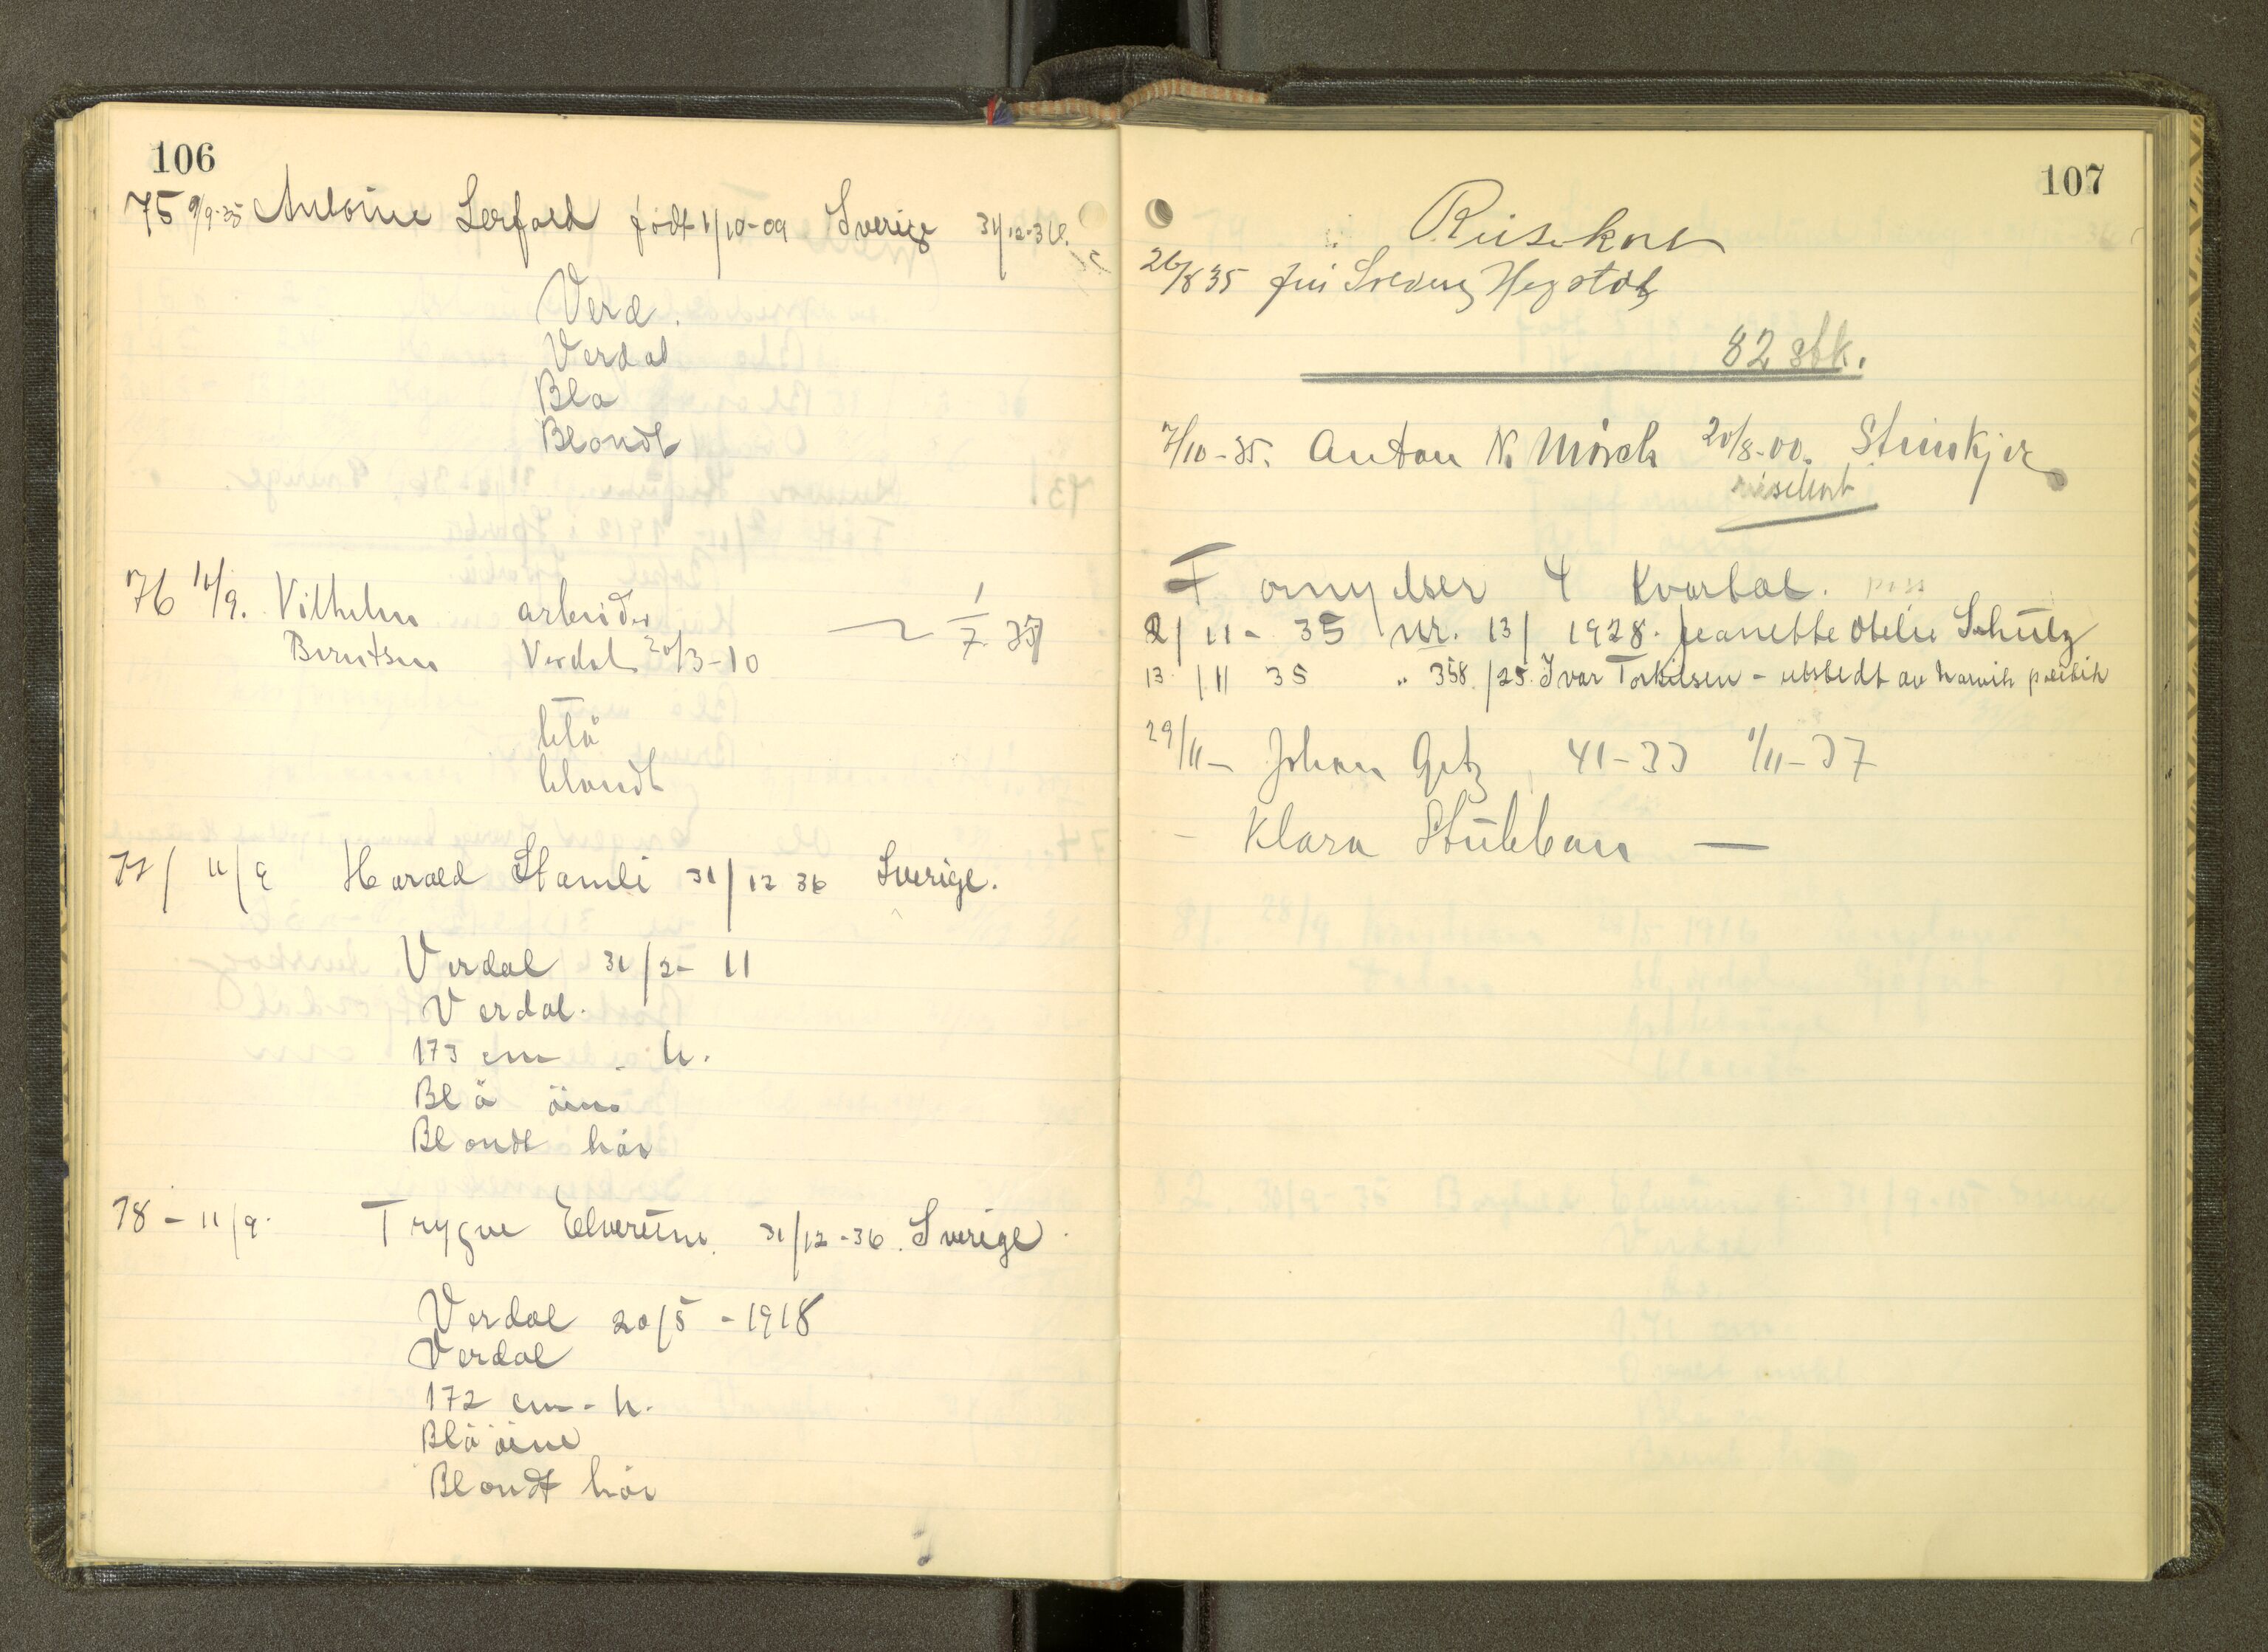 106
75 9/9-35 Antoine Lerfald födt 1/10-09 Sverige 31/12-36.
Verd.
Verdal
Bla
Blondt
76 10/9. Vilhelm arbeider 1/7 37
Berntsen Verdal 20/3-10
blå
blondt
77/ 11/9 Harald Stamli 31/12 36 Sverige.
Verdal 31/2-11
Verdal.
173 cm h.
Blå öine
Blondt hår
78 - 11/9. Trygve Elverum. 31/12-36. Sverige.
Verdal 20/5 - 1918
Verdal
172 cm - h.
Blå öine
Blondt hår
107
Reisekort
26/8 35 Hegstad
82 stk.
7/10-35. Anton N. Mörch 20/8-00. Steinkjer
reisekort
Fornyelser 4 Kvartal. pass
2/11-35 nr. 13/1928. Jeanette Otelie Schulz
13/11 35 " 358/25. Ivar Torkilsen - utstedt av Narvik politik
29/11- Johan Getz 41-33 1/11-37
- Klara Stubban —